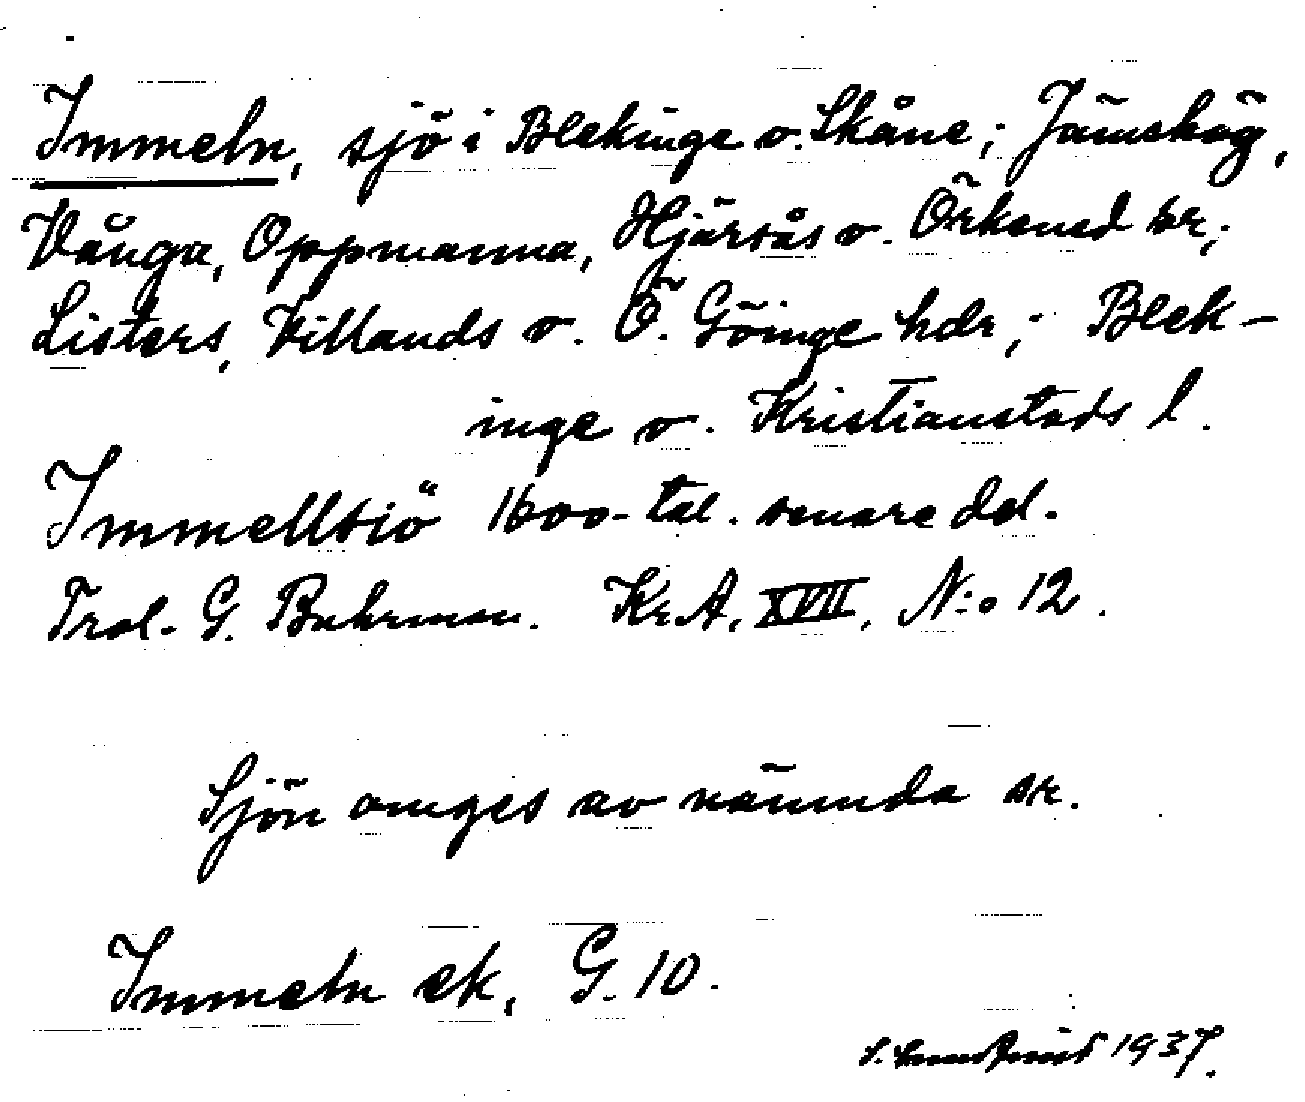 Immeln, sjö i Blekinge o. Skåne; Jämshög,
Vånga, Oppmanna, Hjärsås o. Örkened sr;
Listers, Villands o. Ö. Göinge hdr; Blek-
inge o. Kristianstads l.
Immellsiö 1600-tal. senare del.
Trol. G. Buhrman. Kr.A. XVII, N:o 12.
Sjön omges av nämnda sr.
Immeln ek, G. 10.
1937.